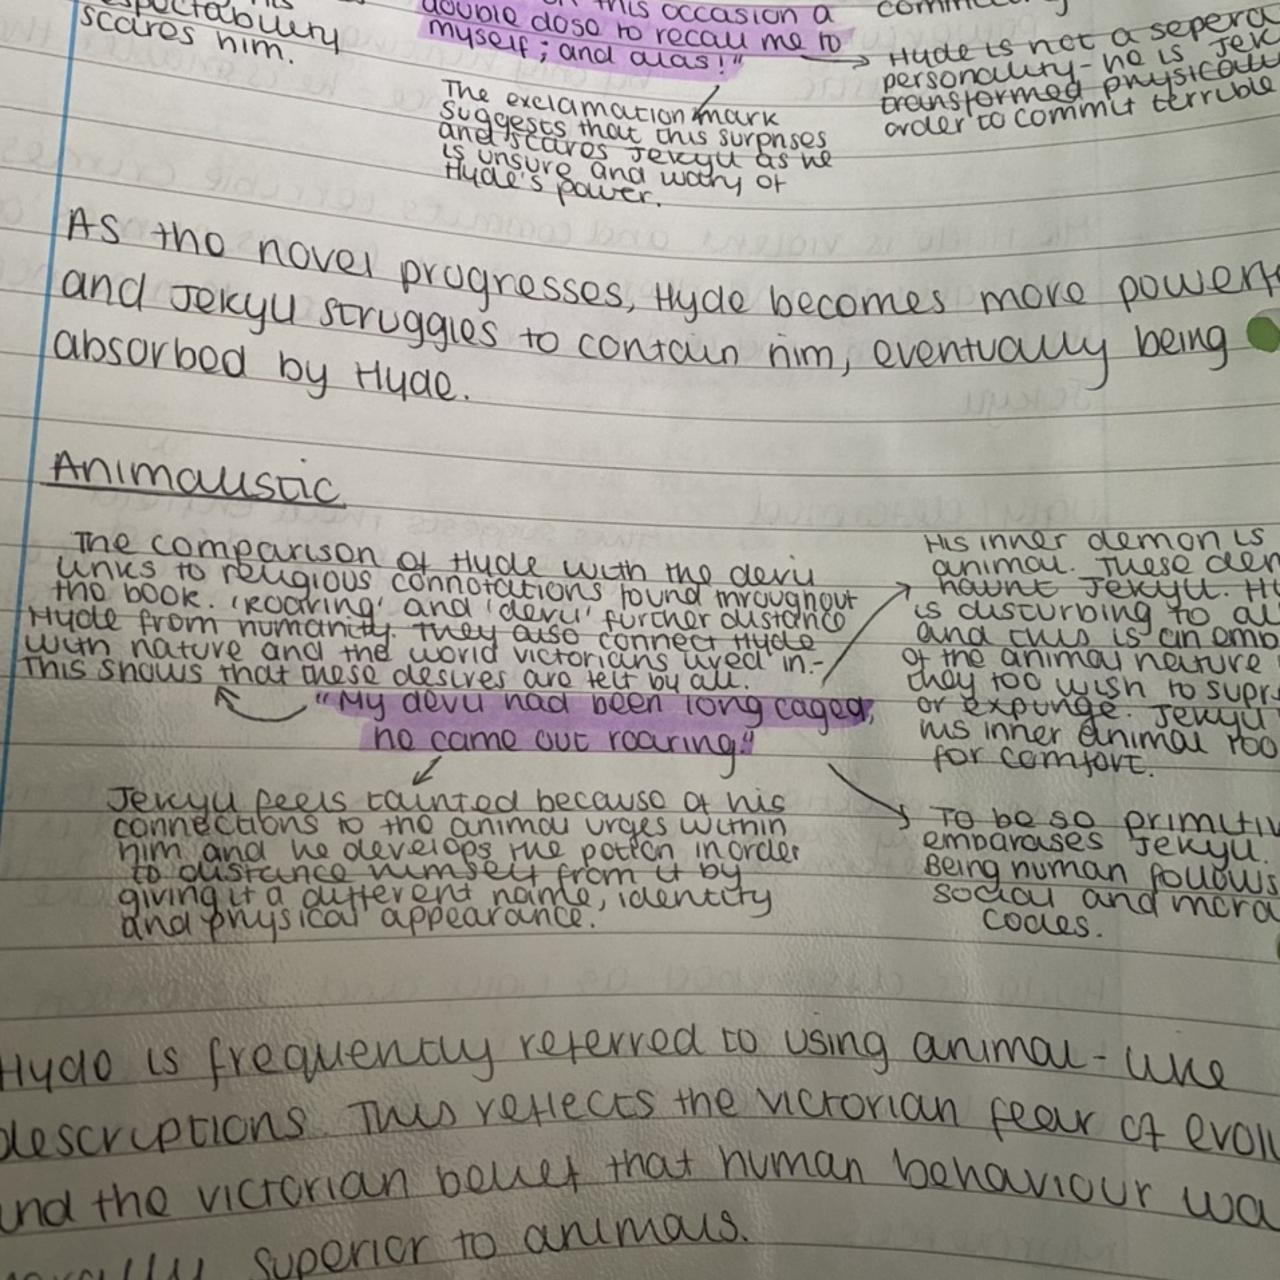 scares him.
this occasion a
double dose to recall me to
myself; and alas!"
Hyde is not a sepera
personality - he is Jek
transformed physicall
order to commit terrible
The exclamation mark
suggests that this surprises
and scares Jekyll as he
is unsure and wary of
Hyde's power.
As the novel progresses, Hyde becomes more powerf
and Jekyll struggles to contain him, eventually being
absorbed by Hyde.
Animalistic
The comparison of Hyde with the devil
links to religious connotations found throughout
the book. 'Roaring' and 'devil' further distance
Hyde from humanity. They also connect Hyde
with nature and the world victorians lived in. -
This shows that these desires are felt by all.
"My devil had been long caged,
he came out roaring."
His inner demon is
animal. These dem
haunt Jekyll. H
is disturbing to al
and this is an emb
of the animal nature
they too wish to supr
or expunge. Jekyll
his inner animal too
for comfort.
Jekyll feels tainted because of his
connections to the animal urges within
him and he develops the potion in order
to distance himself from it by
giving it a different name, identity
and physical appearance.
To be so primitiv
embarases Jekyll.
Being human follows
social and mora
codes.
Hyde is frequently referred to using animal-like
descriptions. This reflects the victorian fear of evolu
and the victorian belief that human behaviour wa
superior to animals.